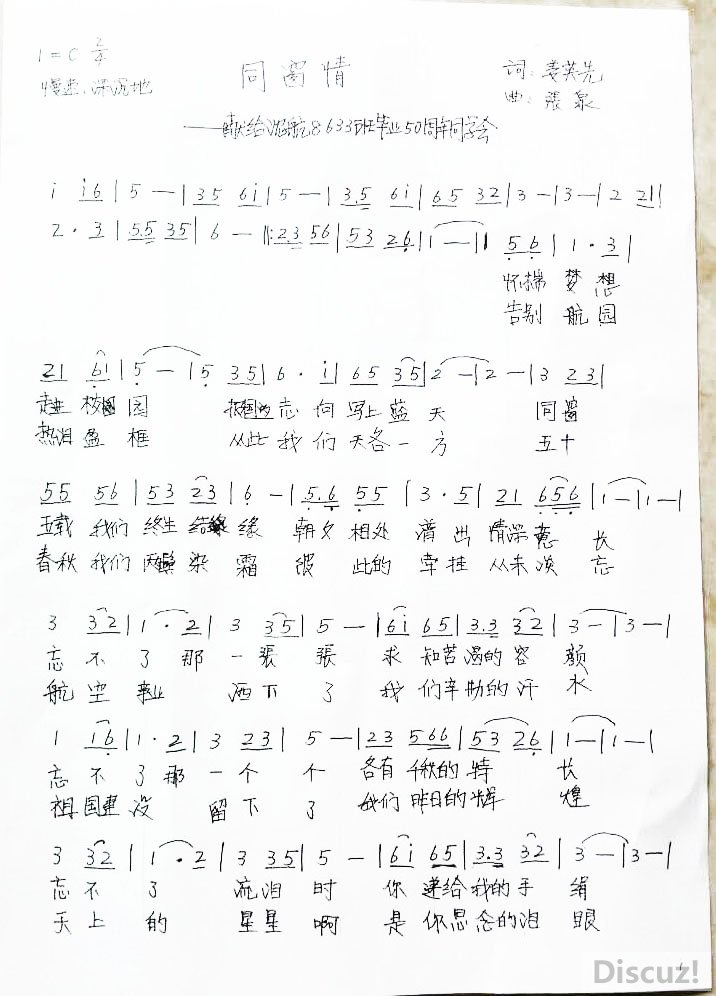 1=C 2/4
慢速.深沉地
同窗情
词:姜英先
曲:張泉
——献给沈航8633班毕业50周年同学会
i i6 | 5 — | 35 6i | 5 — | 3.5 6i | 65 32 | 3 — | 3 — | 2 21 |
2 · 3 | 5.5 35 | 6 — ‖: 2.3 56 | 53 26 | 1 — | 1 56 | 1 · 3 |
怀揣 梦 想
告别 航 园
21 61 | 5 — | 5 35 | 6 · i | 65 35 | 2 — | 2 — | 3 23 |
走进 校园 园 志向 写上 蓝 天 同 窗
热泪 盈 框 从此 我们 天各一 方 五十
55 56 | 53 23 | 6 — | 5.6 55 | 3 · 5 | 21 656 | 1 — | 1 — |
五载 我们 终生 结 缘 朝夕 相处 谱出 情深 意 长
春秋 我们 两鬓 染 霜 彼 此的 牵挂 从未 淡 忘
3 32 | 1 · 2 | 3 35 | 5 — | 6i 65 | 3.3 32 | 3 — | 3 — |
忘 不 了 那 一 張 張 求 知若渴的 容 颜
航 空 事业 洒 下 了 我 们辛勤的 汗 水
1 16 | 1 · 2 | 3 23 | 5 — | 23 566 | 53 26 | 1 — | 1 — |
忘 不 了 那 一 个 个 各有 千秋的 特 长
祖 国建 设 留 下 了 我们 昨日的 辉 煌
3 32 | 1 · 2 | 3 35 | 5 — | 6i 65 | 3.3 32 | 3 — | 3 — |
忘 不 了 流泪 时 你 递给 我的 手 绢
天 上 的 星星 啊 是 你思念的 泪 眼
1
Discuz!